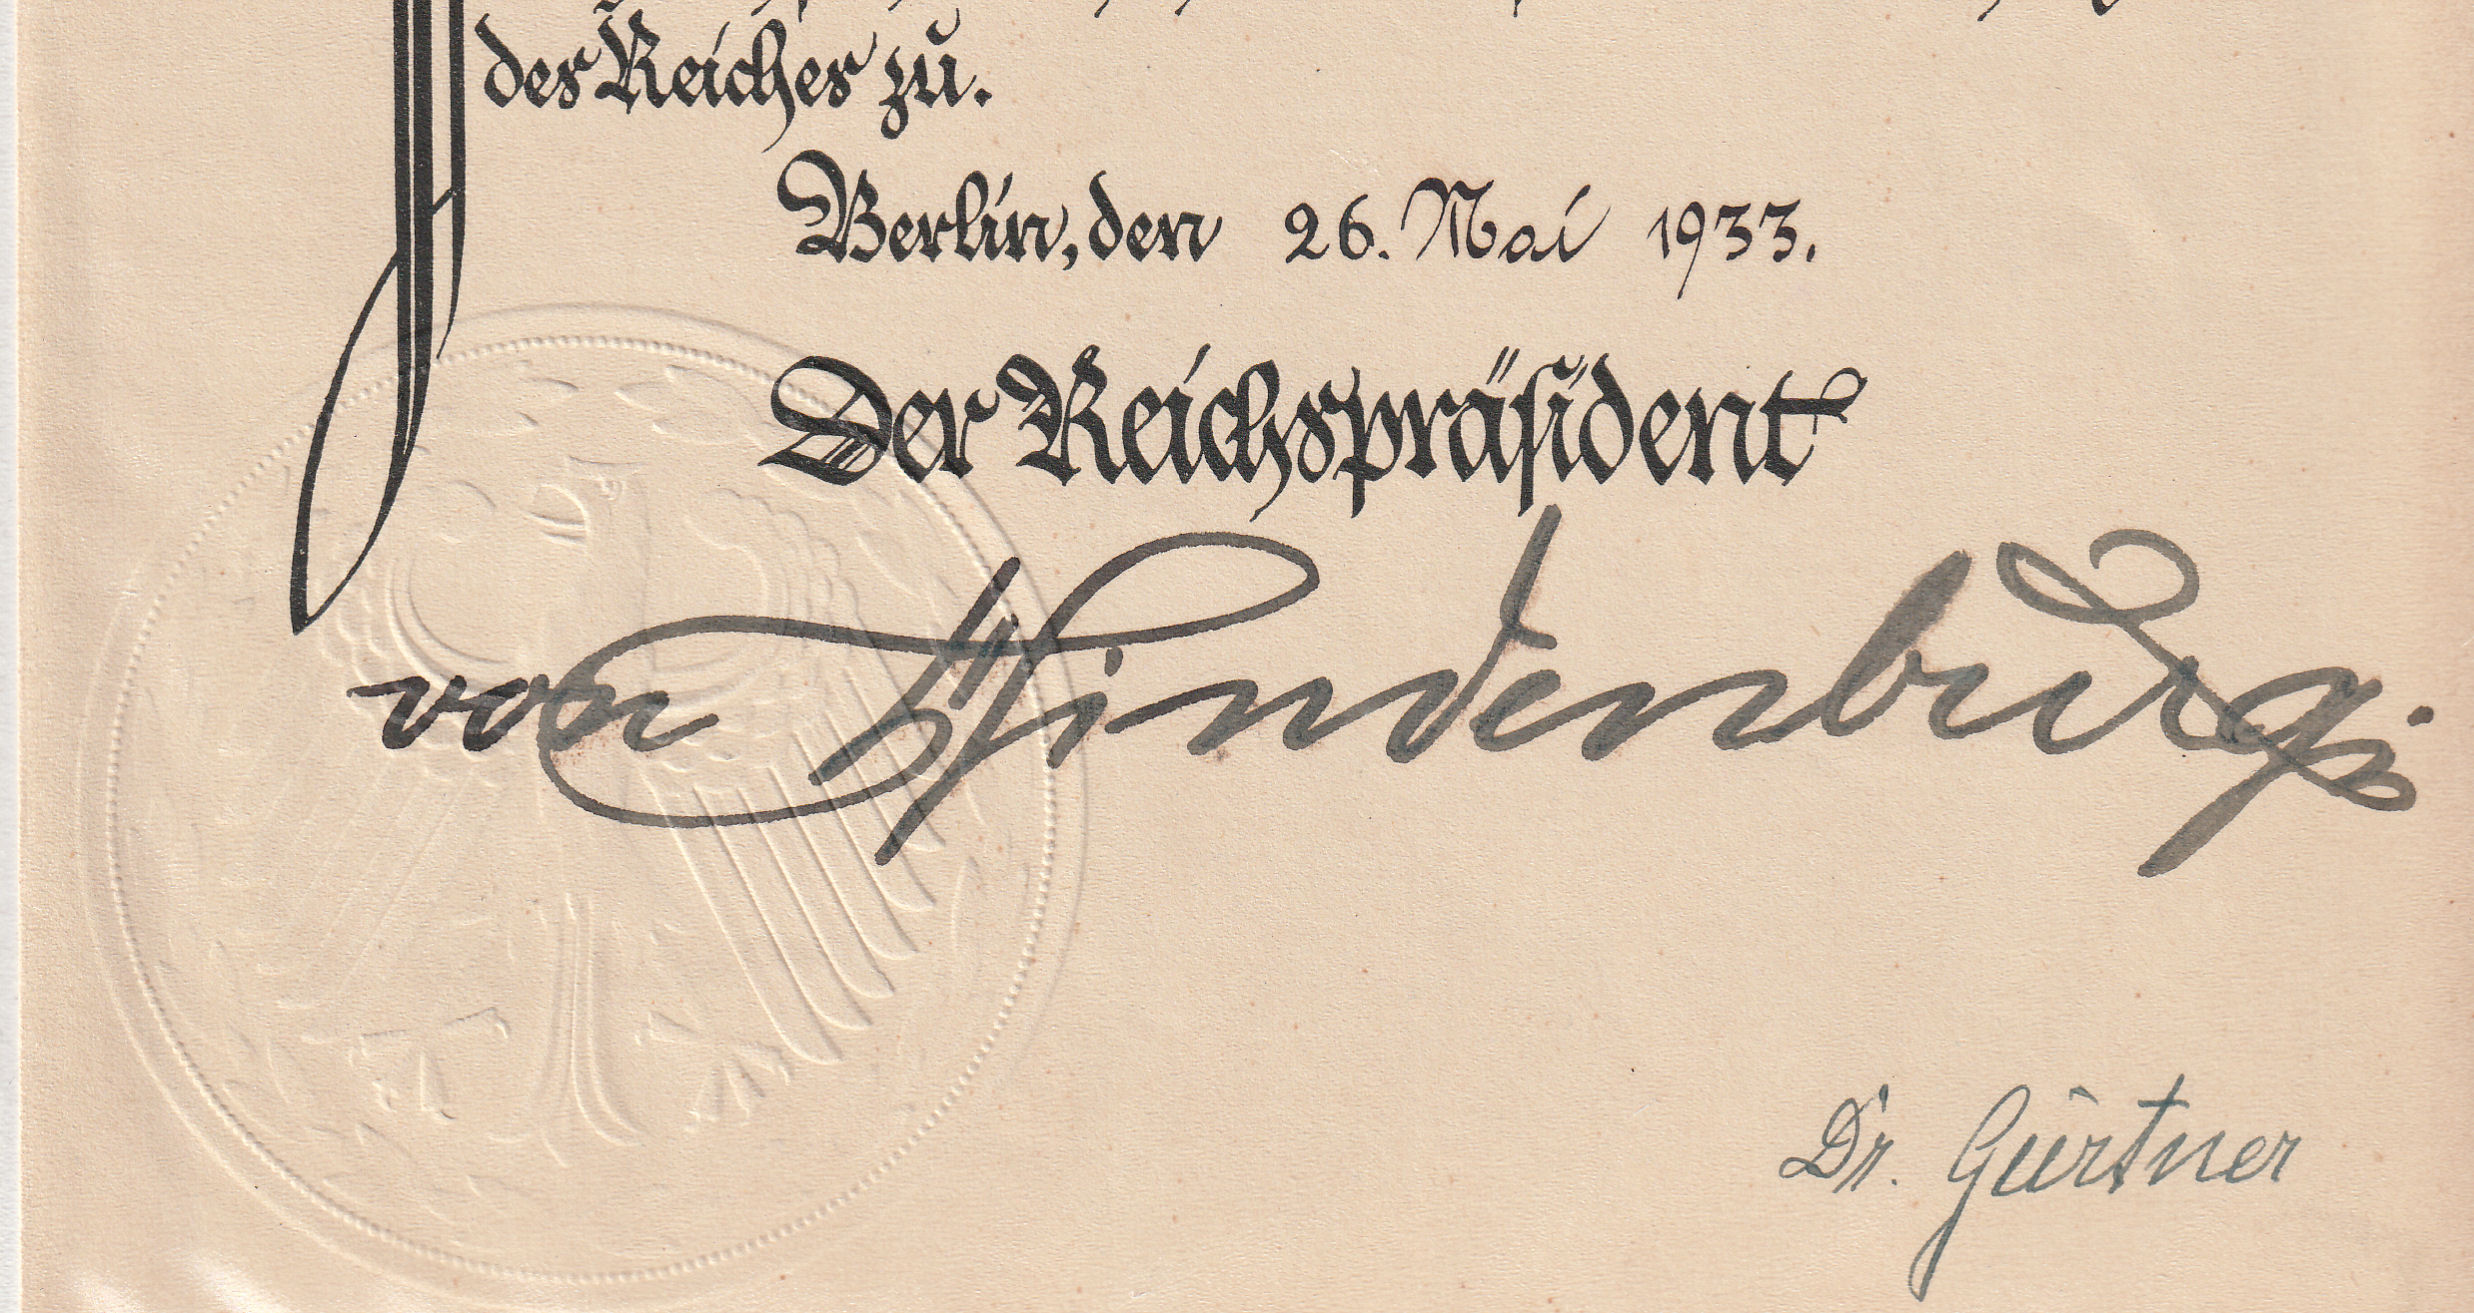 des Reiches zu.
Berlin, den 26. Mai 1933.
Der Reichspräsident
von Hindenburg.
Dr. Gürtner